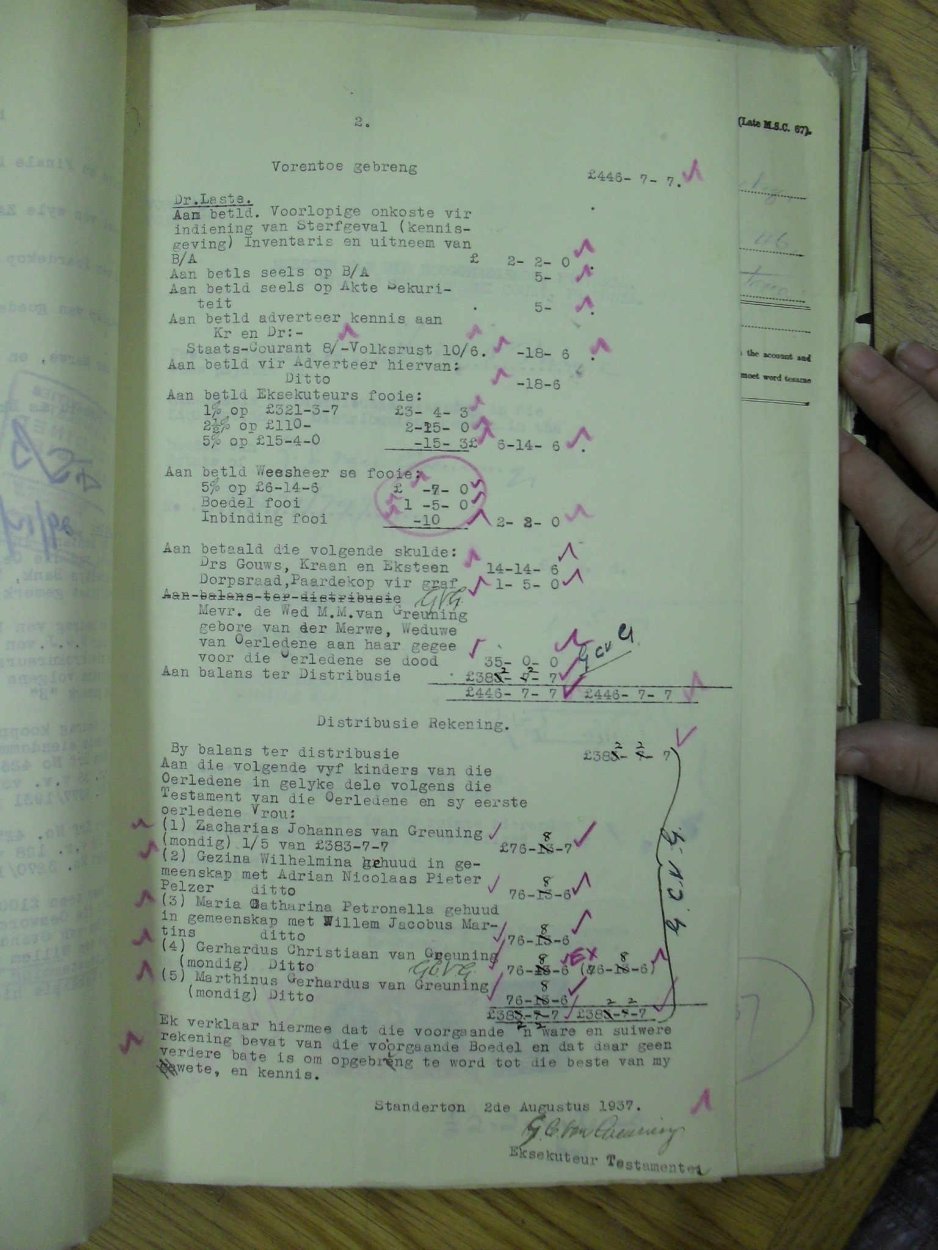 2.
(Late M.S.C. 67).
Vorentoe gebreng £446- 7- 7.
Dr.Laste.
Aan betld. Voorlopige onkoste vir
indiening van Sterfgeval (kennis-
geving) Inventaris en uitneem van
B/A £ 2- 2- 0
Aan betls seels op B/A 5-
Aan betld seels op Akte Sekuri-
teit 5-
Aan betld adverteer kennis aan
Kr en Dr:-
Staats-Courant 8/-Volksrust 10/6. -18- 6
Aan betld vir Adverteer hiervan:
Ditto -18-6
Aan betld Eksekuteurs fooie:
1% op £321-3-7 £3- 4- 3
2½% op £110- 2-15- 0
5% op £15-4-0 -15- 3£ 6-14- 6
Aan betld Weesheer se fooie:
5% op £6-14-6 £ -7- 0
Boedel fooi 1 -5- 0
Inbinding fooi -10 2- 2- 0
Aan betaald die volgende skulde:
Drs Gouws, Kraan en Eksteen 14-14- 6
Dorpsraad,Paardekop vir graf 1- 5- 0
Aan balans ter distribusie GVG
Mevr. de Wed M.M.van Greuning
gebore van der Merwe, Weduwe
van Oerledene aan haar gegee
voor die Oerledene se dood 35- 0- 0
Aan balans ter Distribusie £382- 2- 7
£446- 7- 7 £446- 7- 7
Distribusie Rekening.
By balans ter distribusie £382- 2- 7
Aan die volgende vyf kinders van die
Oerledene in gelyke dele volgens die
Testament van die Oerledene en sy eerste
oerledene Vrou:
(1) Zacharias Johannes van Greuning
(mondig) 1/5 van £383-7-7 £76-8-7
(2) Gezina Wilhelmina gehuud in ge-
meenskap met Adrian Nicolaas Pieter
Pelzer ditto 76-8-6
(3) Maria Catharina Petronella gehuud
in gemeenskap met Willem Jacobus Mar-
tins ditto 76-8-6
(4) Gerhardus Christiaan van Greuning
(mondig) Ditto 76-8-6 EX (76-8-6)
(5) Marthinus Gerhardus van Greuning
(mondig) Ditto 76-8-6
£382-2-7 £382-2-7
Ek verklaar hiermee dat die voorgaande 'n ware en suiwere
rekening bevat van die voorgaande Boedel en dat daar geen
verdere bate is om opgebreng te word tot die beste van my
wete, en kennis.
Standerton 2de Augustus 1937.
G.C. van Greuning
Eksekuteur Testamenter
the account and
moet word tesame